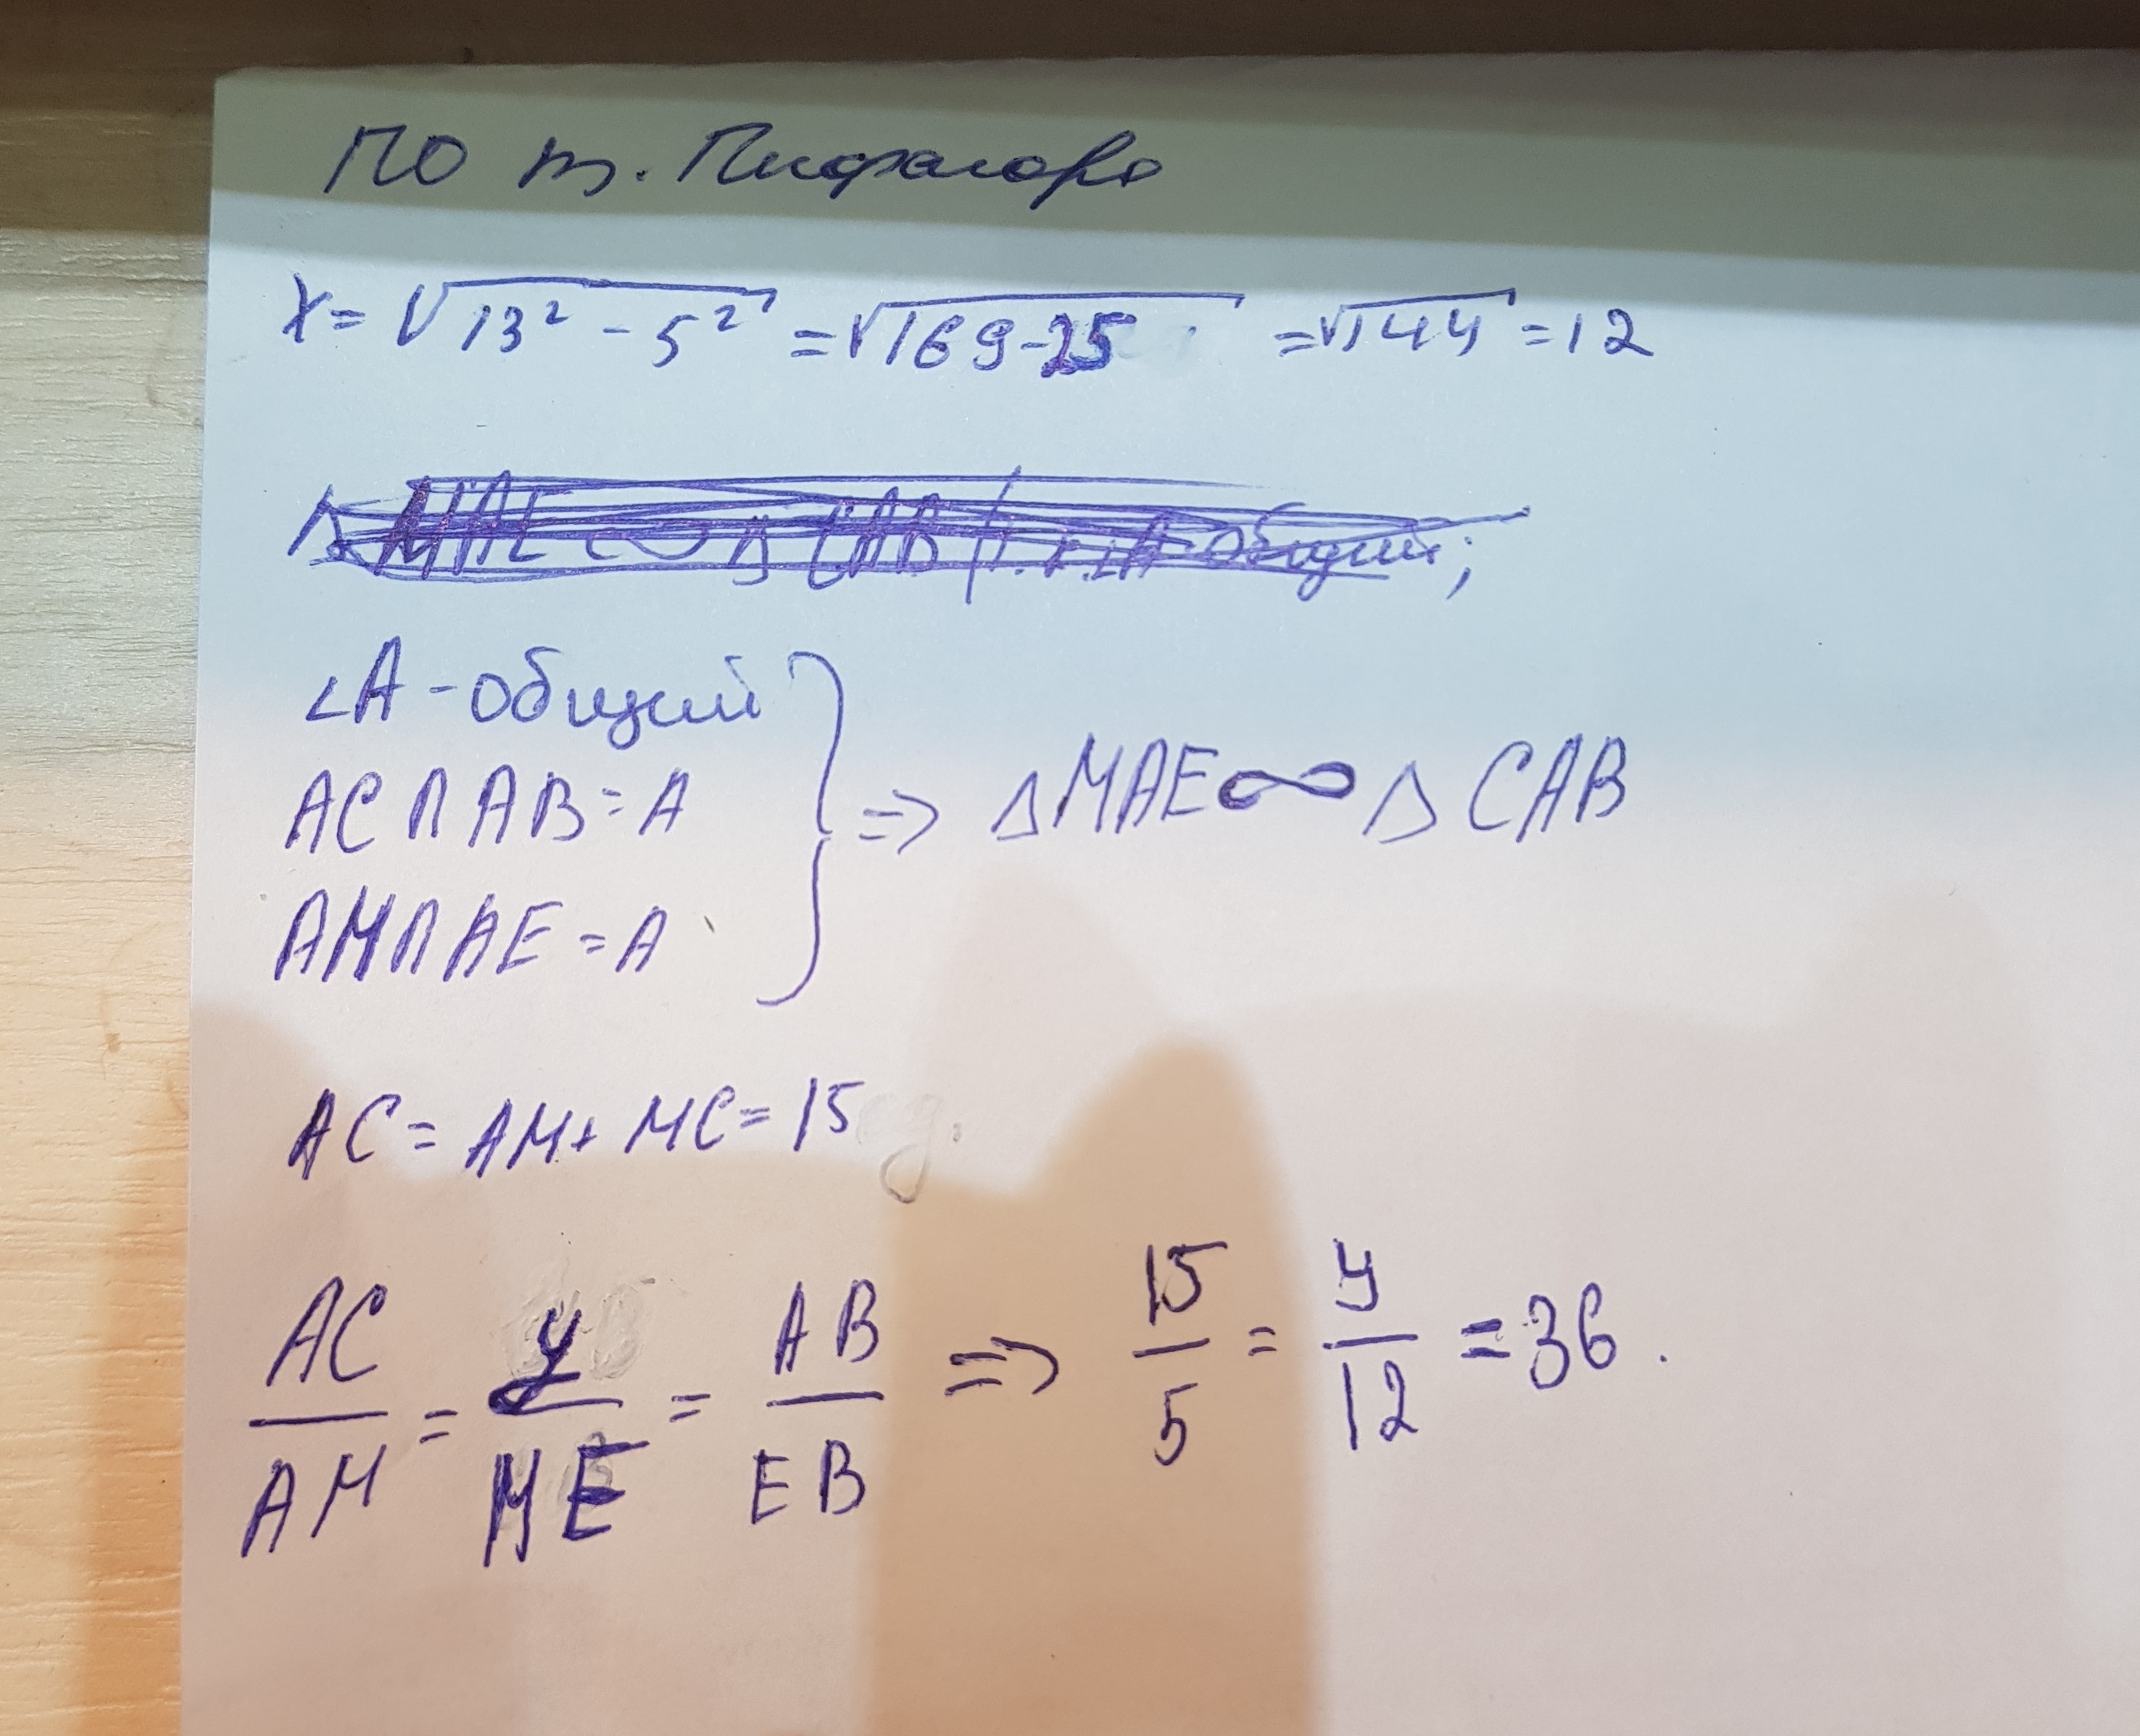 По т. Пифагора
x = √13² - 5² = √169-25 = √144 = 12
Δ MAE ∞ Δ CAB (т.к. ∠A общий;
∠A - общий
AC ∩ AB = A
AM ∩ AE = A
=> Δ MAE ∞ Δ CAB
AC = AM + MC = 15
AC/AM = y/ME = AB/EB => 15/5 = y/12 = 36.